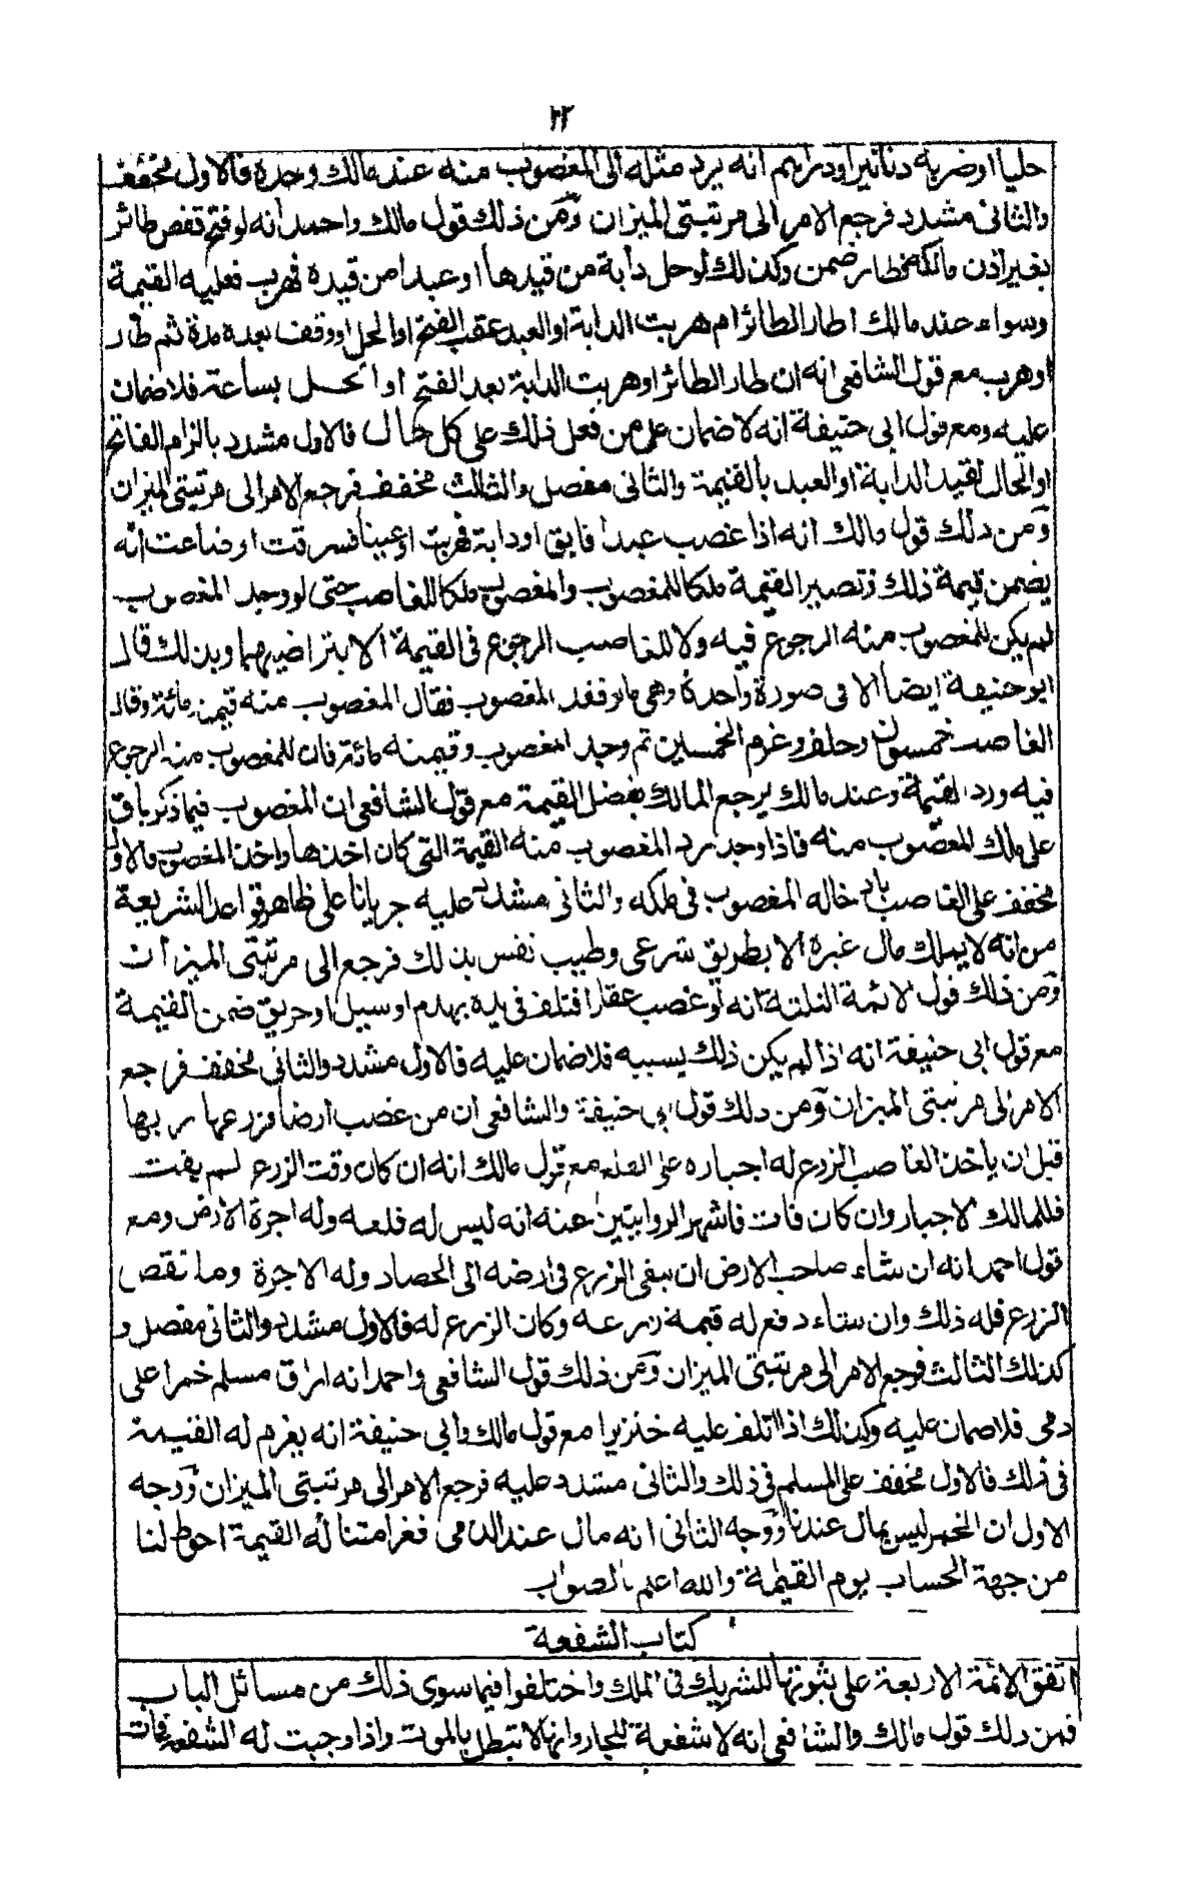 ٢٢
حليا او ضربه دنانير او دراهم انه يرد مثله الى المغصوب منه عند مالك وحده فالاول مخفف
والثانى مشدد فرجع الامر الى مرتبتى الميزان ومن ذلك قول مالك واحمد انه لو فتح قفص طائر
بغير اذن مالكه فطار ضمن وكذلك لو حل دابة من قيدها او عبدا من قيده فهرب فعليه القيمة
وسواء عند مالك اطار الطائر ام هربت الدابة او العبد عقب الفتح او الحل او وقف بعده مدة ثم طار
او هرب مع قول الشافعى انه ان طار الطائر او هربت الدابة بعد الفتح او الحل بساعة فلا ضمان
عليه ومع قول ابى حنيفة انه لا ضمان على من فعل ذلك على كل حال فالاول مشدد بالزام الفاتح
او الحال لقيد الدابة او العبد بالقيمة والثانى مفصل والثالث مخفف فرجع الامر الى مرتبتى الميزان
ومن ذلك قول مالك انه اذا غصب عبدا فابق او دابة فهربت او عينا فسرقت او ضاعت انه
يضمن قيمة ذلك وتصير القيمة ملكا للمغصوب والمغصوب ملكا للغاصب حتى لو وجد المغصوب
لم يكن للمغصوب منه الرجوع فيه ولا للغاصب الرجوع فى القيمة الا بتراضيهما وبذلك قال
ابو حنيفة ايضا الا فى صورة واحدة وهى ما لو فقد المغصوب فقال المغصوب منه قيمته مائة وقال
الغاصب خمسون وحلف وغرم الخمسين ثم وجد المغصوب وقيمته مائة فان للمغصوب منه الرجوع
فيه ورد القيمة وعند مالك يرجع المالك بفضل القيمة مع قول الشافعى ان المغصوب فيما ذكر باق
على ملك المغصوب منه فاذا وجد رد المغصوب منه القيمة التى كان اخذها واخذ المغصوب فالاول
مخفف على الغاصب بادخاله المغصوب فى ملكه والثانى مشدد عليه جريانا على ظاهر قواعد الشريعة
من انه لا يملك مال غيره الا بطريق شرعى وطيب نفس بذلك فرجع الى مرتبتى الميزان
ومن ذلك قول الائمة الثلثة انه لو غصب عقارا فتلف فى يده بهدم او سيل او حريق ضمن القيمة
مع قول ابى حنيفة انه اذا لم يكن ذلك بسببه فلا ضمان عليه فالاول مشدد والثانى مخفف فرجع
الامر الى مرتبتى الميزان ومن ذلك قول ابى حنيفة والشافعى ان من غصب ارضا فزرعها ربها
قبل ان ياخذ الغاصب الزرع له اجباره على القلع مع قول مالك انه ان كان وقت الزرع لم يفت
فللمالك الاجبار وان كان فات فاشهر الروايتين عنه انه ليس له قلعه وله اجرة الارض ومع
قول احمد انه ان شاء صاحب الارض ان يبقى الزرع فى ارضه الى الحصاد وله الاجرة وما نقص
الزرع فله ذلك وان شاء دفع له قيمة زرعه وكان الزرع له فالاول مشدد والثانى مفصل و
كذلك الثالث فرجع الامر الى مرتبتى الميزان ومن ذلك قول الشافعى واحمد انه اراق مسلم خمرا على
ذمى فلا ضمان عليه وكذلك اذا اتلف عليه خنزيرا مع قول مالك وابى حنيفة انه يغرم له القيمة
فى ذلك فالاول مخفف على المسلم فى ذلك والثانى مشدد عليه فرجع الامر الى مرتبتى الميزان ووجه
الاول ان الخمر ليس بمال عندنا ووجه الثانى انه مال عند الذمى فغرامتنا له القيمة احوط لنا
من جهة الحساب يوم القيمة والله اعلم بالصواب
كتاب الشفعة
اتفق الائمة الاربعة على ثبوتها للشريك فى الملك واختلفوا فيما سوى ذلك من مسائل الباب
فمن ذلك قول مالك والشافعى انه لا شفعة للجار وانها لا تبطل بالموت واذا وجبت له الشفعة فمات